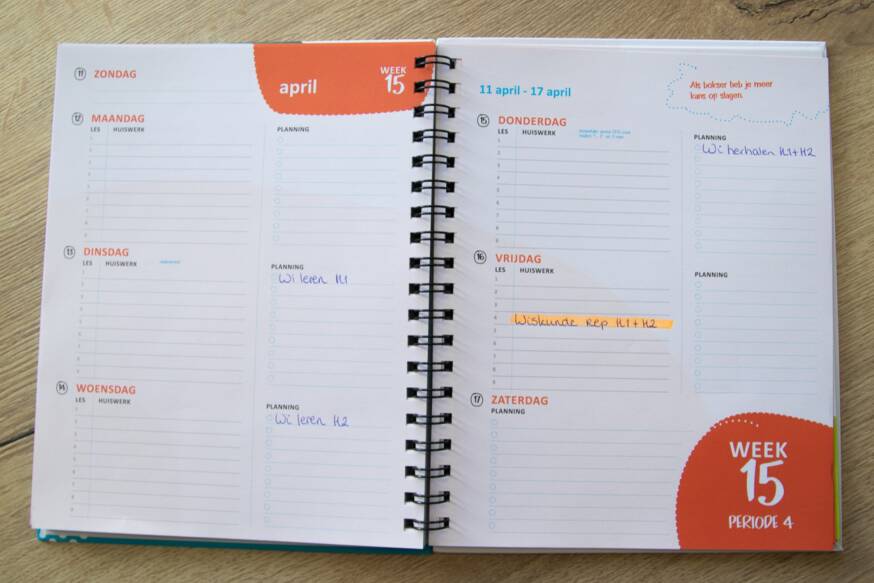 11 ZONDAG
april
WEEK
15
12 MAANDAG
LES HUISWERK
PLANNING
1
2
3
4
5
6
7
8
9
13 DINSDAG
LES HUISWERK
PLANNING
Wi leren H1
1
2
3
4
5
6
7
8
9
14 WOENSDAG
LES HUISWERK
PLANNING
Wi leren H2
1
2
3
4
5
6
7
8
9
11 april - 17 april
Als bokser heb je meer
kans op slagen.
15 DONDERDAG
LES HUISWERK
PLANNING
Wi herhalen H1+H2
1
2
3
4
5
6
7
8
9
16 VRIJDAG
LES HUISWERK
PLANNING
1
2
3
4
Wiskunde rep H1+H2
5
6
7
8
9
17 ZATERDAG
PLANNING
WEEK
15
PERIODE 4